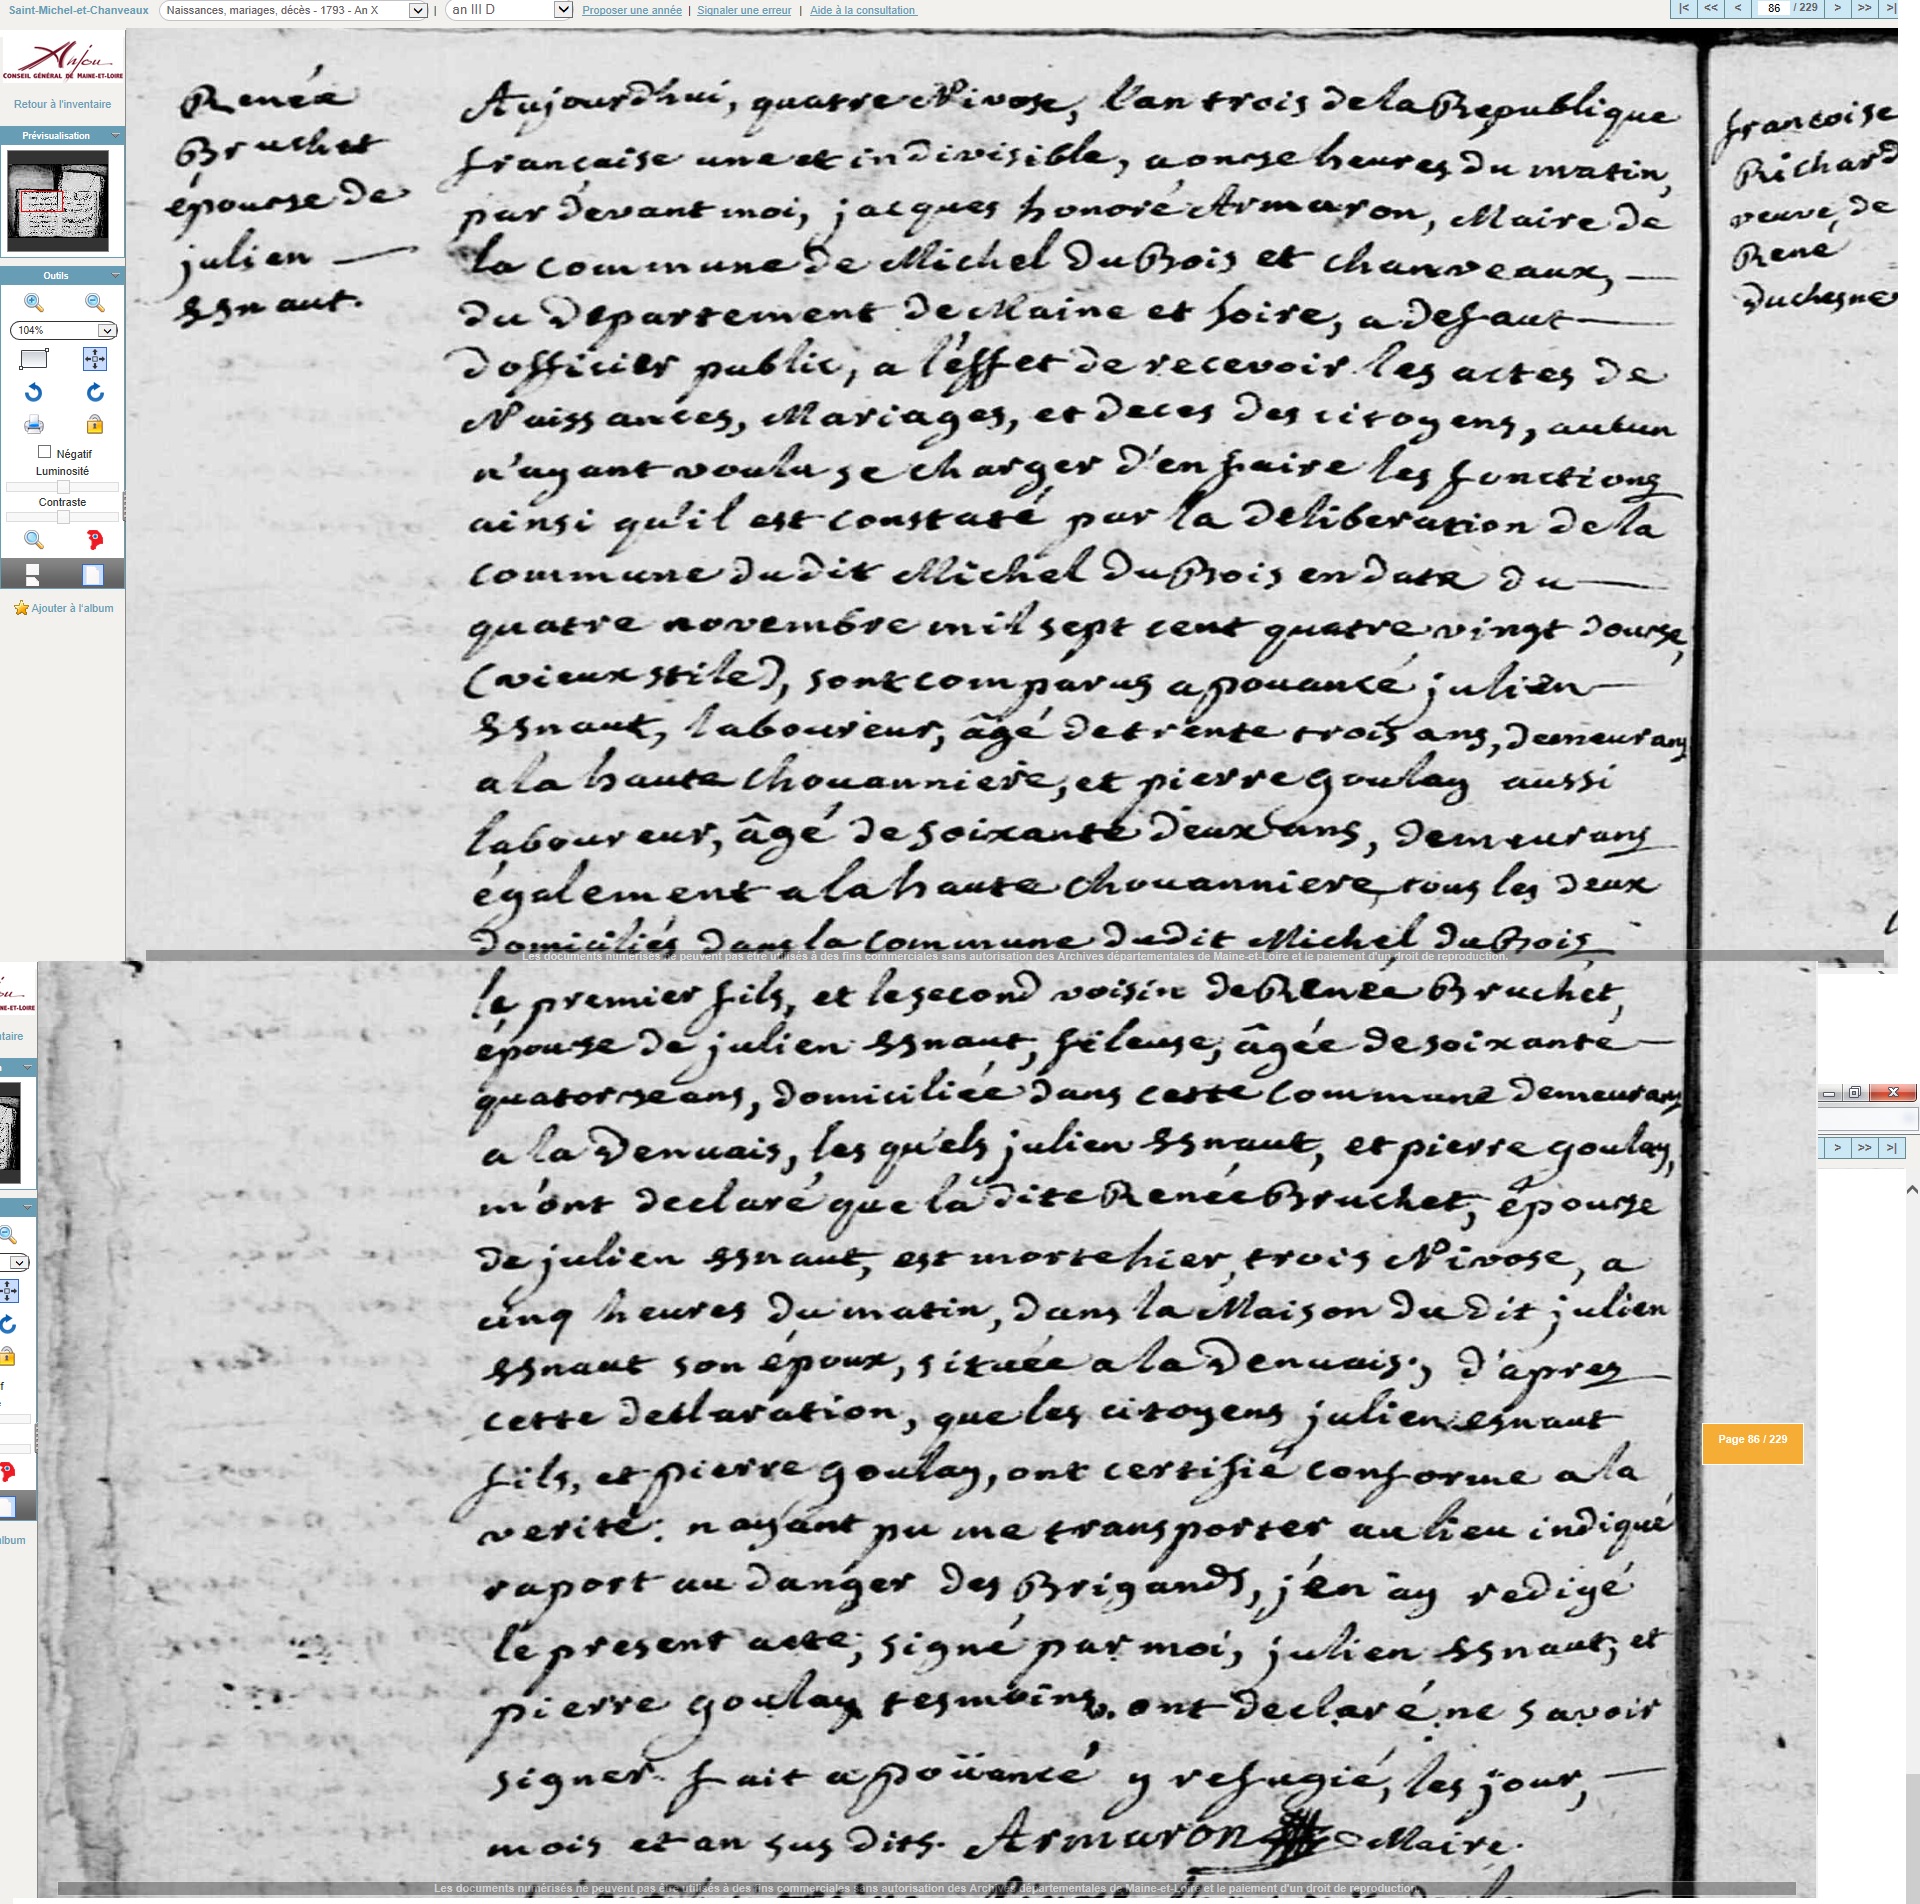 Saint-Michel-et-Chanveaux
Naissances, mariages, décès - 1793 - An X
|
an III D
Proposer une année | Signaler une erreur | Aide à la consultation
|< << < 86 / 229 > >> >|
Anjou
CONSEIL GÉNÉRAL DE MAINE-ET-LOIRE
Retour à l'inventaire
Prévisualisation
Outils
104%
Négatif
Luminosité
Contraste
Ajouter à l'album
Renée
Bruchet
épouse de
julien —
Esnaut.
Aujourd'hui, quatre Nivose, l'an trois de la Republique
francaise une et indivisible, a onse heures du matin,
par devant moi, jacques honoré Armaron, Maire de
la commune de Michel du Bois et chanveaux, —
du departement de Maine et Loire, a defaut —
d'officier public, a l'éffet de recevoir les actes de
Naissances, Mariages, et deces des citoyens, aucun
n'ayant voulu se charger d'en faire les fonctions
ainsi qu'il est constaté par la deliberation de la
commune dudit Michel du Bois en date du —
quatre novembre mil sept cent quatre vingt douse,
(vieux stile), sont comparus a pouancé julien —
Esnaut, laboureur, âgé de trente trois ans, demeurans
a la haute chouanniere, et pierre goulay aussi
laboureur, âgé de soixante deux ans, demeurans
également a la haute chouanniere, tous les deux
domiciliés dans la commune dudit Michel du Bois
Les documents numérisés ne peuvent pas être utilisés à des fins commerciales sans autorisation des Archives départementales de Maine-et-Loire et le paiement d'un droit de reproduction.
le premier fils, et le second voisin de Renée Bruchet,
épouse de julien Esnaut, fileuse, âgée de soixante —
quatorse ans, domiciliée dans cette commune demeurans
a la Denuais, les quels julien Esnaut, et pierre goulay,
m'ont declaré que la dite Renée Bruchet, épouse
de julien Esnaut, est morte hier, trois Nivose, a
cinq heures du matin, dans la Maison du dit julien
Esnaut son époux, située a la Denuais, d'apres
cette declaration, que les citoyens julien esnaut
fils, et pierre goulay, ont certifié conforme a la
verité: n'ayant pu me transporter au lieu indiqué
raport au danger des Brigands, j'en ay redigé
le present acte, signé par moi, julien Esnaut, et
pierre goulay tesmoins, ont declaré ne savoir
signer. fait a poüancé y refugié, les jour, —
mois et an sus dits. Armaron Maire.
Les documents numérisés ne peuvent pas être utilisés à des fins commerciales sans autorisation des Archives départementales de Maine-et-Loire et le paiement d'un droit de reproduction.
francoise
Richard
veuve de
René
Duchesne
ou
NE-ET-LOIRE
ntaire
f
lbum
> >> >|
Page 86 / 229